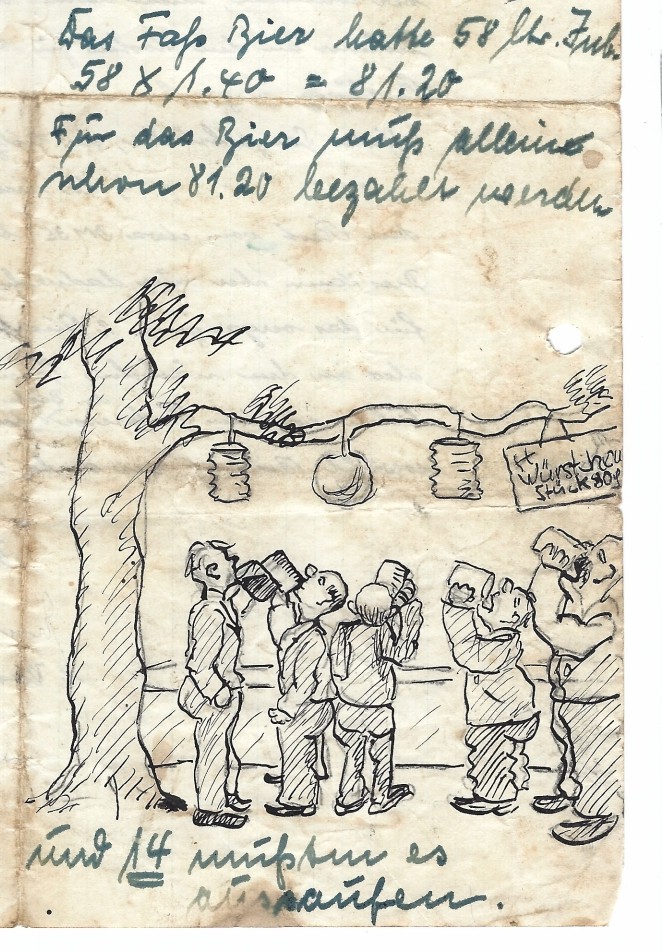 Das Faß Bier hatte 58 ltr. Inh.
58 x 1.40 = 81.20
Für das Bier muß alleine
schon 81.20 bezahlt werden
Würstchen
Stück 80
und 14 mußten es
aussaufen.